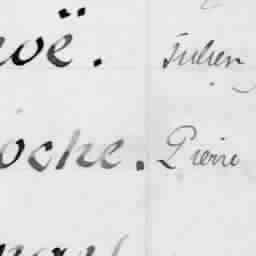 oë. Julien
oche. Pierre